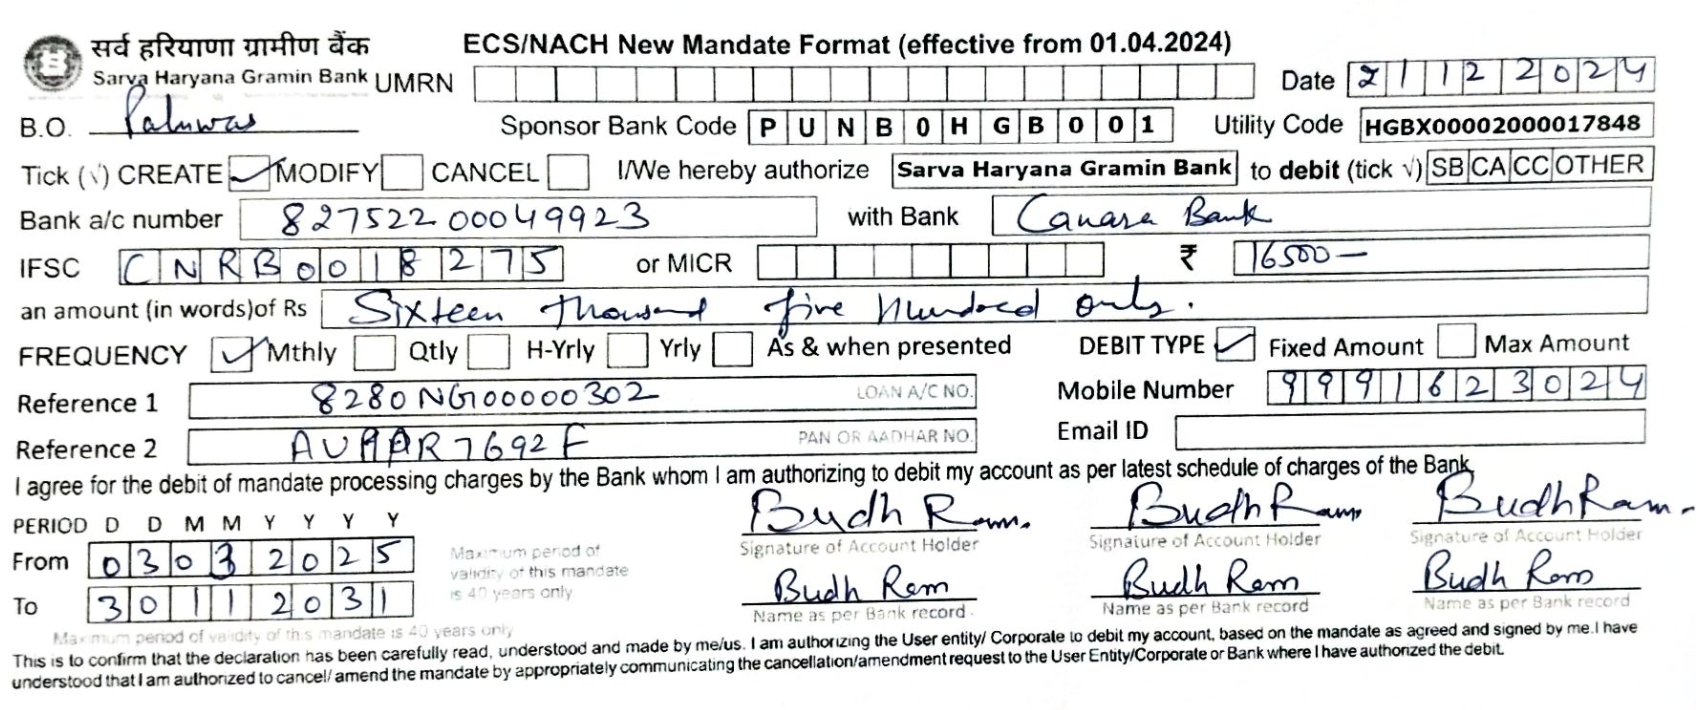 सर्व हरियाणा ग्रामीण बैंक ECS/NACH New Mandate Format (effective from 01.04.2024)
Sarva Haryana Gramin Bank UMRN Date 21122024
B.O. Paluwas Sponsor Bank Code PUNB0HGB001 Utility Code HGBX00002000017848
Tick (√) CREATE ✓ MODIFY CANCEL I/We hereby authorize Sarva Haryana Gramin Bank to debit (tick √) SB CA CC OTHER
Bank a/c number 82752200049923 with Bank Canara Bank
IFSC CNRB0018275 or MICR ₹ 16500—
an amount (in words)of Rs Sixteen Thousand five Hundred only.
FREQUENCY ✓ Mthly Qtly H-Yrly Yrly As & when presented DEBIT TYPE ✓ Fixed Amount Max Amount
Reference 1 8280NG00000302 LOAN A/C NO. Mobile Number 9991623024
Reference 2 AUAPR7692F PAN OR AADHAR NO. Email ID
I agree for the debit of mandate processing charges by the Bank whom I am authorizing to debit my account as per latest schedule of charges of the Bank
PERIOD D D M M Y Y Y Y Budh Ram. Budh Ram Budh Ram.
From 03032025 Maximum period of validity of this mandate is 40 years only Signature of Account Holder Signature of Account Holder Signature of Account Holder
To 30112031 Budh Ram Budh Ram Budh Ram
Name as per Bank record. Name as per Bank record Name as per Bank record
Maximum period of validity of this mandate is 40 years only
This is to confirm that the declaration has been carefully read, understood and made by me/us. I am authorizing the User entity/ Corporate to debit my account, based on the mandate as agreed and signed by me.I have
understood that I am authorized to cancel/ amend the mandate by appropriately communicating the cancellation/amendment request to the User Entity/Corporate or Bank where I have authorized the debit.